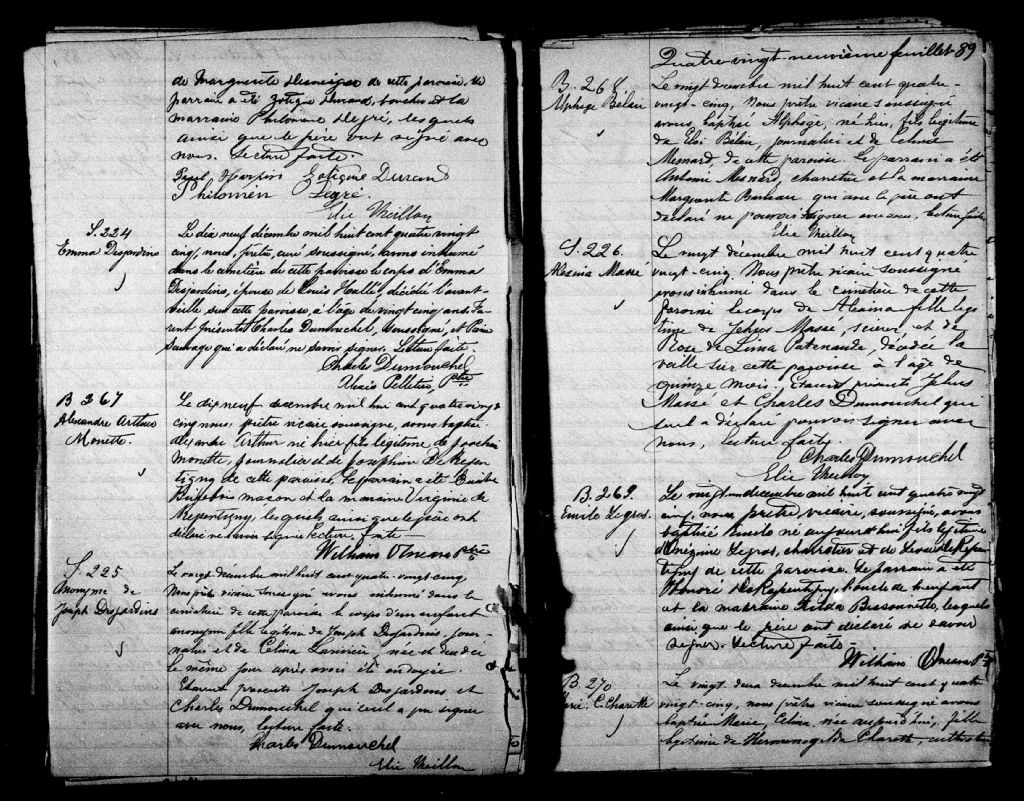 de Marguerite de cette paroisse. Le
parrain a été Zotique Durand, boucher et la
marraine Philomène Legré, lesquels
ainsi que le père ont signé avec
nous. Lecture faite.
Zotique Durand
Philomène Legré
Elie Meillon
S. 224
Emma Desjardins
Le dix neuf décembre mil huit cent quatre vingt
cinq, nous, prêtre, curé soussigné, avons inhumé
dans le cimetière de cette paroisse le corps d'Emma
Desjardins, épouse de Louis Hallé, décédée l'avant-
veille sur cette paroisse, à l'âge de vingt cinq ans. Fu-
rent présents Charles Dumouchel, soussigné, et
Sauvage qui a déclaré ne savoir signer. Lecture faite.
Charles Dumouchel
Alexis Pelletier, Ptre
B 267
Alexandre Arthur
Monette.
Le dix neuf décembre mil huit cent quatre vingt
cinq nous, prêtre vicaire soussigné, avons baptisé
Alexandre Arthur né hier fils légitime de Joachim
Monette, journalier et de Josephine De Repen
tigny de cette paroisse. Le parrain a été
maçon et la marraine Virginie de
Repentigny, lesquels ainsi que le père ont
déclaré ne savoir signer lecture faite
William Ptre
S. 225
Anonyme de
Joseph Desjardins
Le vingt décembre mil huit cent quatre-vingt cinq
Nous prêtre vicaire soussigné avons inhumé dans le
cimetière de cette paroisse le corps d'un enfant
anonyme fille légitime de Joseph Desjardins, jour-
nalier et de Celina Larivière, née et décédée
le même jour après avoir été ondoyée.
Etaient présents Joseph Desjardins et
Charles Dumouchel qui seul a pu signer
avec nous, lecture faite.
Charles Dumouchel
Elie Meillon
Quatre-vingt-neuvième feuillet 89
B. 268.
Alphege Bélair
Le vingt décembre mil huit cent quatre-
vingt-cinq, Nous prêtre vicaire soussigné
avons baptisé Alphege, né hier, fils légitime
de Eloi Bélair, journalier et de Celina
Mesnard, de cette paroisse. Le parrain a été
Antoine Mesnard, charretier et la marraine
Marguerite, qui avec le père ont
déclaré ne pouvoir signer avec nous, lecture faite
Elie Meillon
S. 226.
Alexina Masse
Le vingt décembre mil huit cent quatre
vingt-cinq Nous prêtre vicaire soussigné
avons inhumé dans le cimetière de cette
paroisse le corps de Alexina fille légi
time de Massé, scieur, et de
Rose de Lima Patenaude, décédée la
veille sur cette paroisse à l'âge de
quinze mois; Etaient présents
Massé et Charles Dumouchel qui
seul a déclaré pouvoir signer avec
nous, lecture faite.
Charles Dumouchel
Elie Meillon
B. 269.
Emile Legros.
Le vingt un décembre mil huit cent quatre vingt
cinq, nous prêtre vicaire, soussigné, avons
baptisé Emile né aujourd'hui fils légitime
d'Onézime Legros, charretier et de De Repen
tigny de cette paroisse. Le parrain a été
Honoré De Repentigny oncle de l'enfant
et la marraine Exilda Bissonnette, lesquels
ainsi que le père ont déclaré ne savoir
signer. Lecture faite
William Ptre
B. 270
C. Charette
Le vingt deux décembre mil huit cent quatre
vingt-cinq, nous prêtre vicaire soussigné avons
baptisé Marie, Celina, née aujourd'hui, fille
légitime de Herménégilde Charette, cultivateur